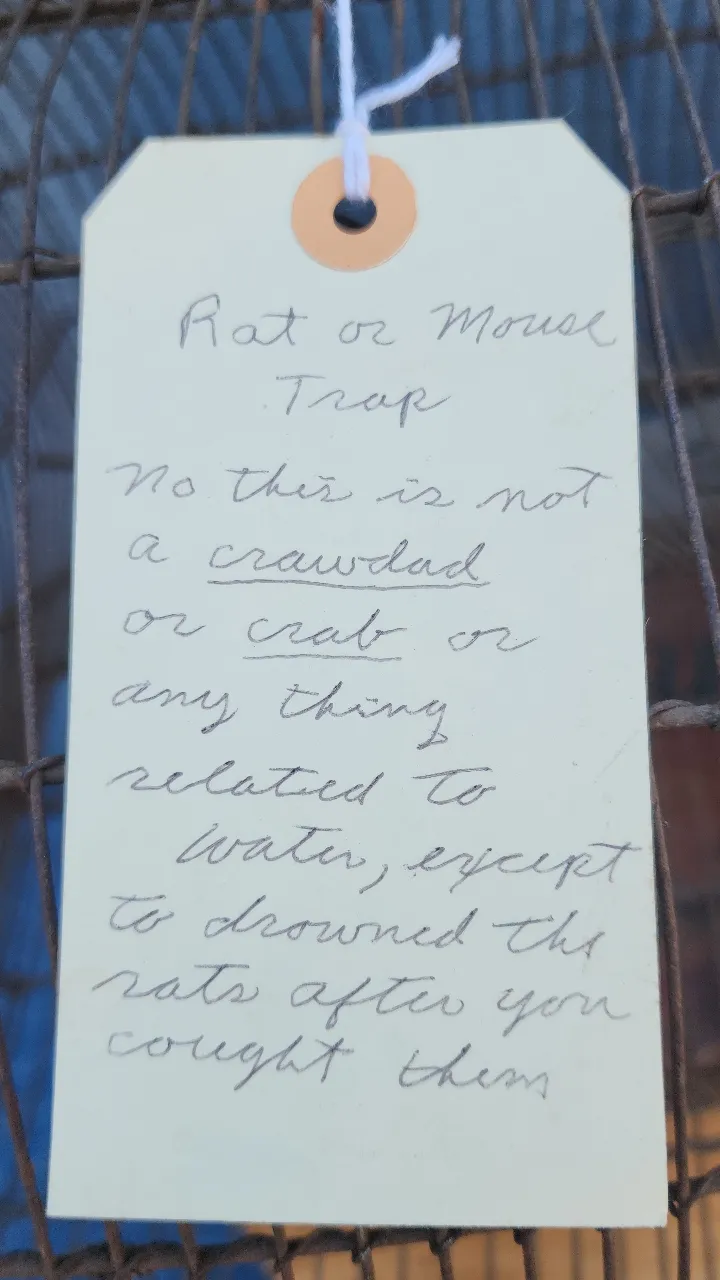 Rat or Mouse
Trap
No this is not
a crawdad
or crab or
any thing
related to
water, except
to drowned the
rats after you
cought them